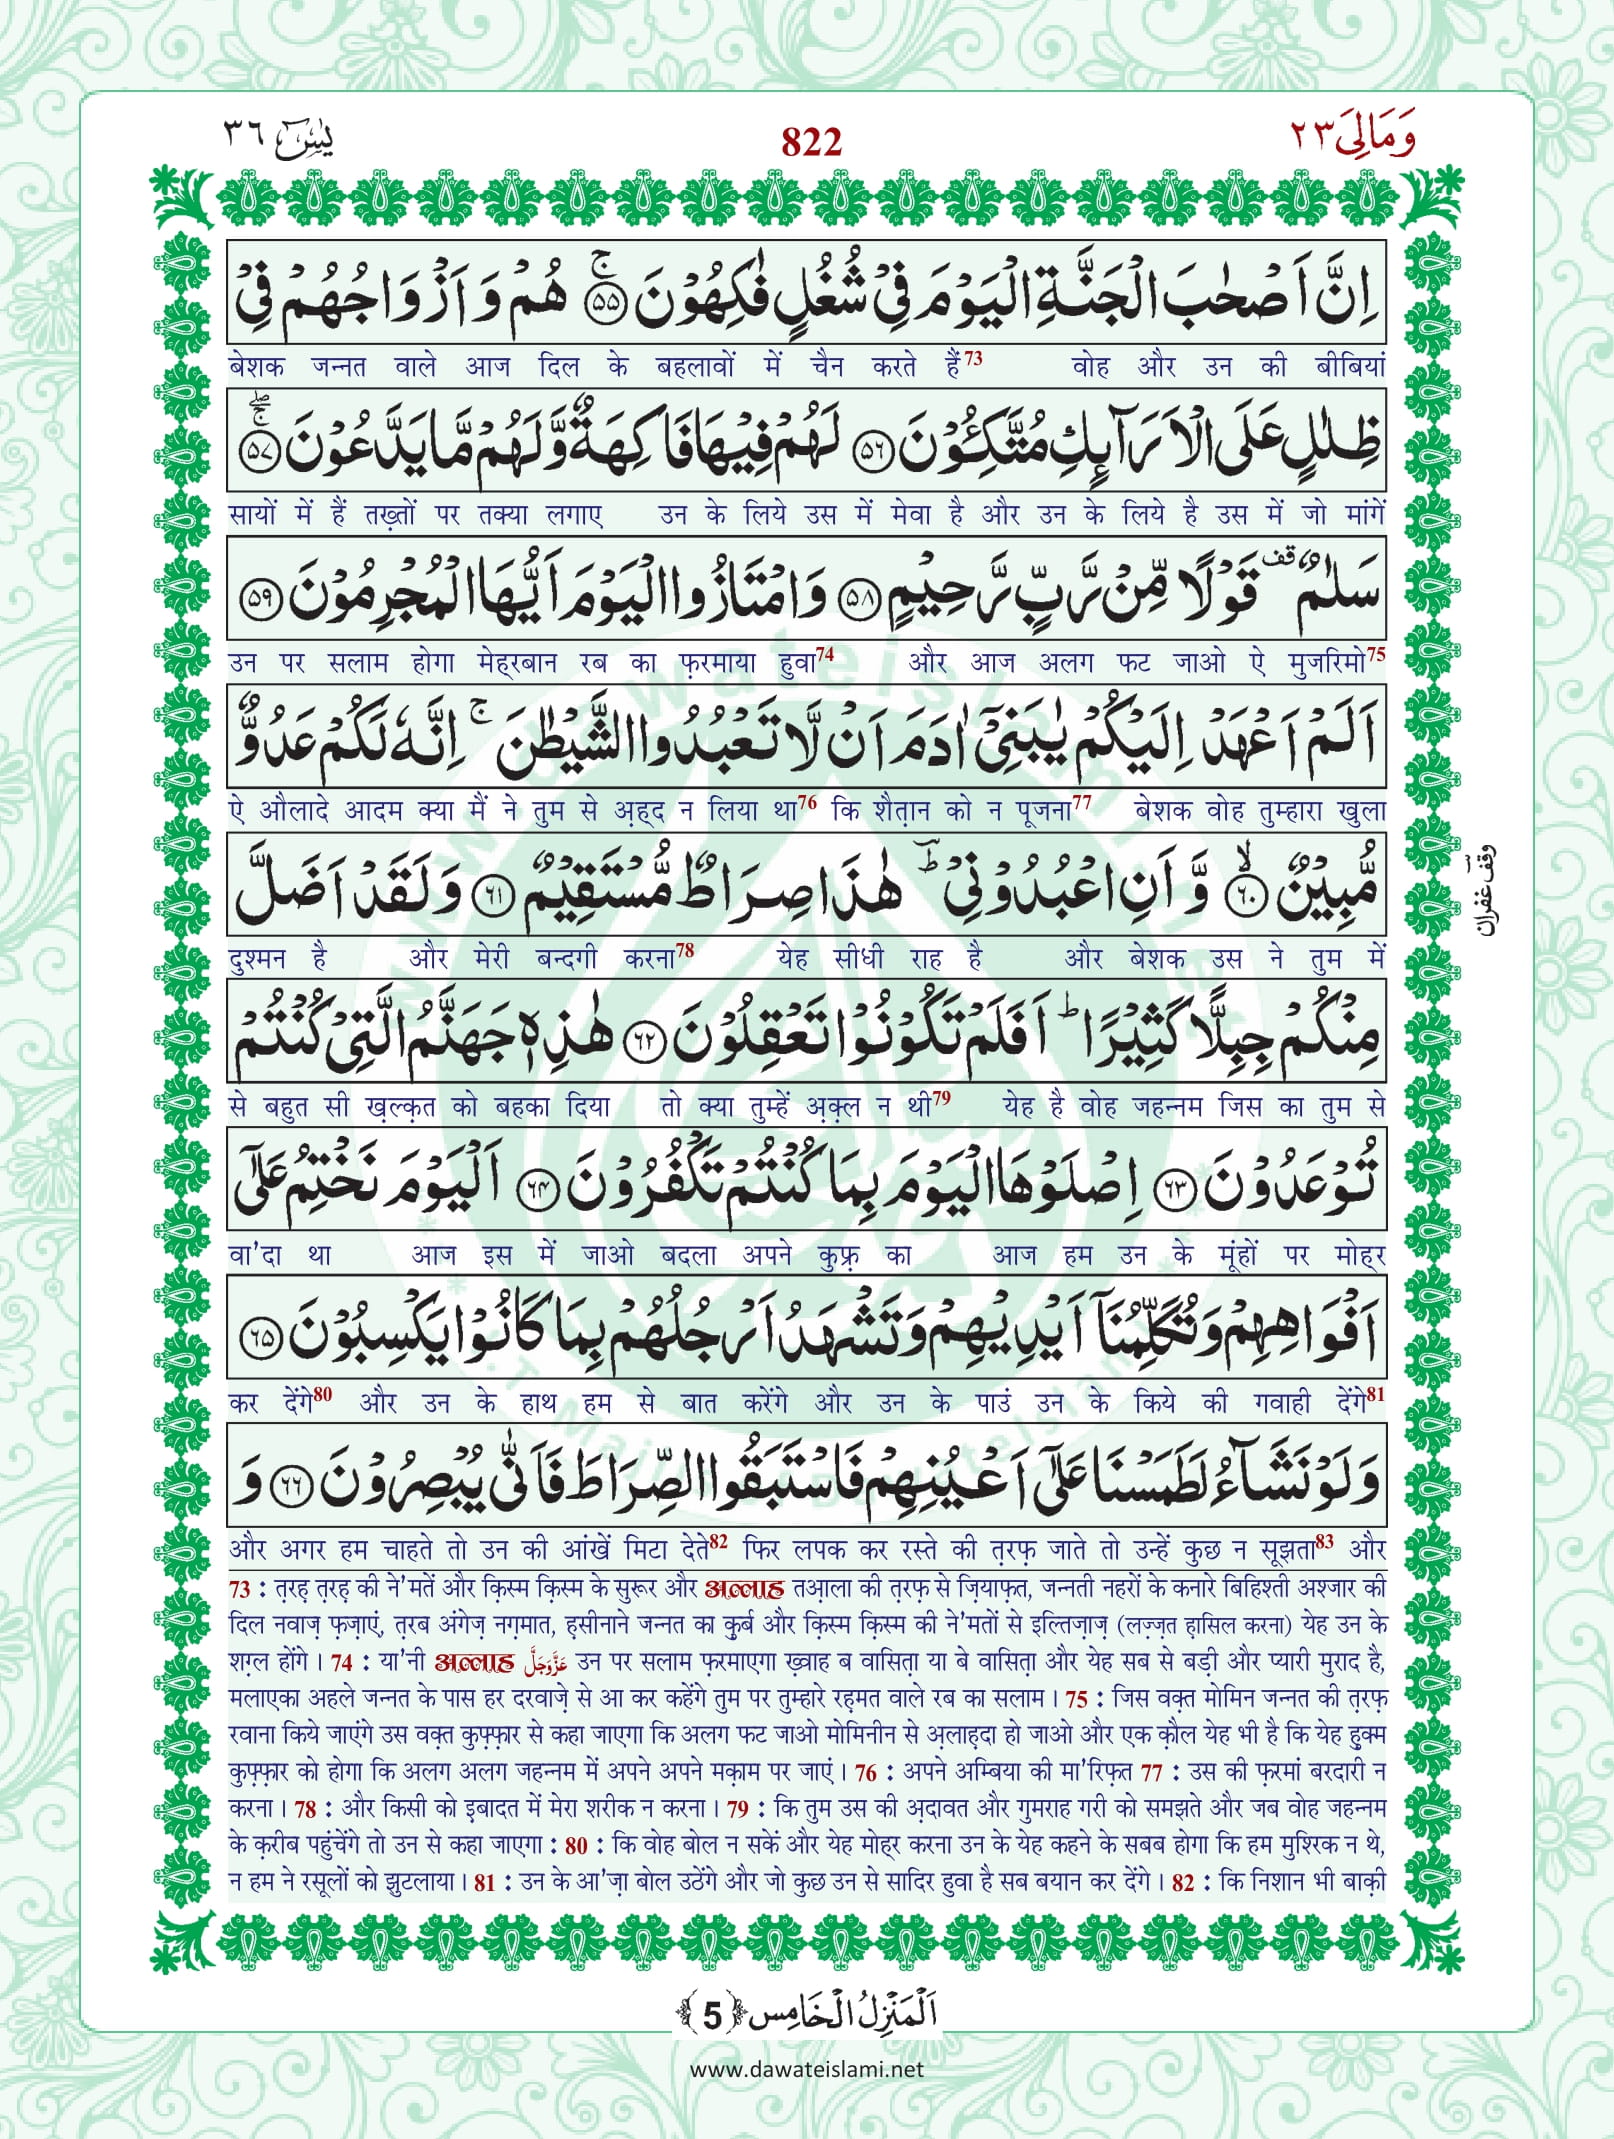 يٰسٓ ٣٦
822
وَمَالِیَ ٢٣
اِنَّ اَصْحٰبَ الْجَنَّةِ الْیَوْمَ فِیْ شُغُلٍ فٰكِهُوْنَ ۚ﴿۵۵﴾ هُمْ وَ اَزْوَاجُهُمْ فِیْ
बेशक जन्नत वाले आज दिल के बहलावों में चैन करते हैं73 वोह और उन की बीबियां
ظِلٰلٍ عَلَی الْاَرَآىِٕكِ مُتَّكِـُٔوْنَ ﴿۵۶﴾ لَهُمْ فِیْهَا فَاكِهَةٌ وَّ لَهُمْ مَّا یَدَّعُوْنَ ۚۖ﴿۵۷﴾
सायों में हैं तख़्तों पर तक्या लगाए उन के लिये उस में मेवा है और उन के लिये है उस में जो मांगें
سَلٰمٌ ۫ قَوْلًا مِّنْ رَّبٍّ رَّحِیْمٍ ﴿۵۸﴾ وَ امْتَازُوا الْیَوْمَ اَیُّهَا الْمُجْرِمُوْنَ ﴿۵۹﴾
उन पर सलाम होगा मेह्रबान रब का फ़रमाया हुवा74 और आज अलग फट जाओ ऐ मुजरिमो75
اَلَمْ اَعْهَدْ اِلَیْكُمْ یٰبَنِیْۤ اٰدَمَ اَنْ لَّا تَعْبُدُوا الشَّیْطٰنَ ۚ اِنَّهٗ لَكُمْ عَدُوٌّ
ऐ औलादे आदम क्या मैं ने तुम से अ़ह्द न लिया था76 कि शैत़ान को न पूजना77 बेशक वोह तुम्हारा खुला
مُّبِیْنٌ ۙ﴿۶۰﴾ وَّ اَنِ اعْبُدُوْنِیْ ؕ هٰذَا صِرَاطٌ مُّسْتَقِیْمٌ ﴿۶۱﴾ وَ لَقَدْ اَضَلَّ
وقف غفران
दुश्मन है और मेरी बन्दगी करना78 येह सीधी राह है और बेशक उस ने तुम में
مِنْكُمْ جِبِلًّا كَثِیْرًا ؕ اَفَلَمْ تَكُوْنُوْا تَعْقِلُوْنَ ﴿۶۲﴾ هٰذِهٖ جَهَنَّمُ الَّتِیْ كُنْتُمْ
से बहुत सी ख़ल्क़त को बहका दिया तो क्या तुम्हें अ़क़्ल न थी79 येह है वोह जहन्नम जिस का तुम से
تُوْعَدُوْنَ ﴿۶۳﴾ اِصْلَوْهَا الْیَوْمَ بِمَا كُنْتُمْ تَكْفُرُوْنَ ﴿۶۴﴾ اَلْیَوْمَ نَخْتِمُ عَلٰۤی
वा'दा था आज इस में जाओ बदला अपने कुफ़्र का आज हम उन के मूंहों पर मोहर
اَفْوَاهِهِمْ وَ تُكَلِّمُنَاۤ اَیْدِیْهِمْ وَ تَشْهَدُ اَرْجُلُهُمْ بِمَا كَانُوْا یَكْسِبُوْنَ ﴿۶۵﴾
कर देंगे80 और उन के हाथ हम से बात करेंगे और उन के पाउं उन के किये की गवाही देंगे81
وَ لَوْ نَشَآءُ لَطَمَسْنَا عَلٰۤی اَعْیُنِهِمْ فَاسْتَبَقُوا الصِّرَاطَ فَاَنّٰی یُبْصِرُوْنَ ﴿۶۶﴾ وَ
और अगर हम चाहते तो उन की आंखें मिटा देते82 फिर लपक कर रस्ते की त़रफ़ जाते तो उन्हें कुछ न सूझता83 और
73 : त़रह़ त़रह़ की ने'मतें और क़िस्म क़िस्म के सुरूर और अल्लाह तआ़ला की त़रफ़ से ज़ियाफ़त, जन्नती नहरों के कनारे बिहिश्ती अश्जार की
दिल नवाज़ फ़ज़ाएं, त़रब अंगेज़ नग़मात, ह़सीनाने जन्नत का क़ुर्ब और क़िस्म क़िस्म की ने'मतों से इल्तिज़ाज़ (लज़्ज़त ह़ासिल करना) येह उन के
शग़्ल होंगे । 74 : या'नी अल्लाह عَزَّوَجَلَّ उन पर सलाम फ़रमाएगा ख़्वाह ब वासित़ा या बे वासित़ा और येह सब से बड़ी और प्यारी मुराद है,
मलाएका अहले जन्नत के पास हर दरवाज़े से आ कर कहेंगे तुम पर तुम्हारे रह़मत वाले रब का सलाम । 75 : जिस वक़्त मोमिन जन्नत की त़रफ़
रवाना किये जाएंगे उस वक़्त कुफ़्फ़ार से कहा जाएगा कि अलग फट जाओ मोमिनीन से अ़लाह़दा हो जाओ और एक क़ौल येह भी है कि येह ह़ुक्म
कुफ़्फ़ार को होगा कि अलग अलग जहन्नम में अपने अपने मक़ाम पर जाएं । 76 : अपने अम्बिया की मा'रिफ़त 77 : उस की फ़रमां बरदारी न
करना । 78 : और किसी को इ़बादत में मेरा शरीक न करना । 79 : कि तुम उस की अ़दावत और गुमराह गरी को समझते और जब वोह जहन्नम
के क़रीब पहुंचेंगे तो उन से कहा जाएगा : 80 : कि वोह बोल न सकें और येह मोहर करना उन के येह कहने के सबब होगा कि हम मुश्रिक न थे,
न हम ने रसूलों को झुटलाया । 81 : उन के आ'ज़ा बोल उठेंगे और जो कुछ उन से सादिर हुवा है सब बयान कर देंगे । 82 : कि निशान भी बाक़ी
اَلْمَنْزِلُ الْخَامِس ﴿5﴾
www.dawateislami.net